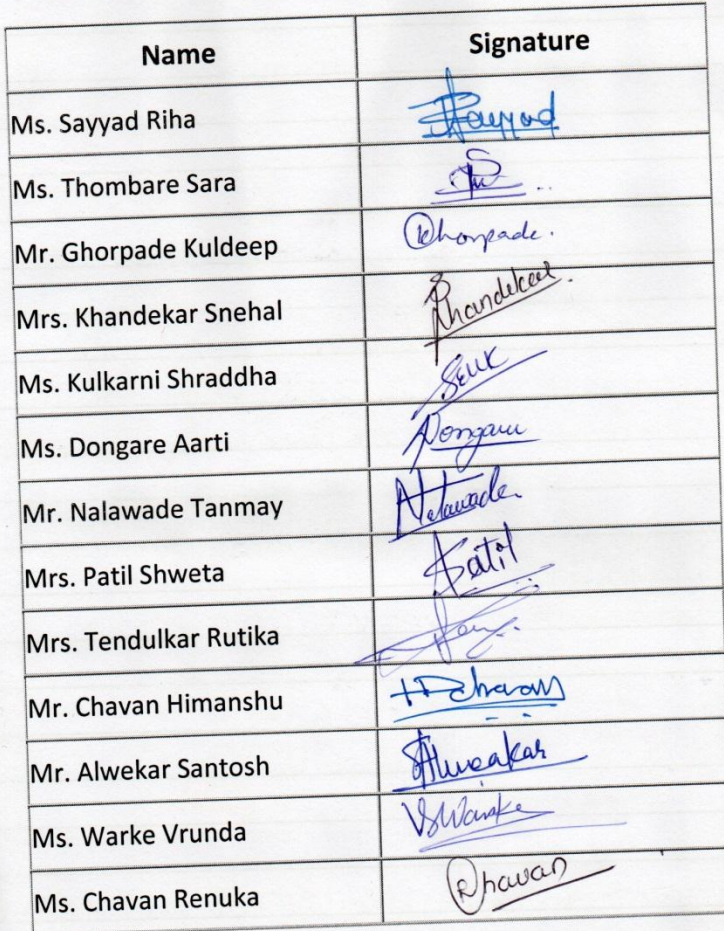 Name Signature
Ms. Sayyad Riha Sayyad
Ms. Thombare Sara
Mr. Ghorpade Kuldeep Ghorpade.
Mrs. Khandekar Snehal Khandekar.
Ms. Kulkarni Shraddha
Ms. Dongare Aarti Dongare
Mr. Nalawade Tanmay Nalawade
Mrs. Patil Shweta Patil
Mrs. Tendulkar Rutika
Mr. Chavan Himanshu HDChavan
Mr. Alwekar Santosh Alweakar
Ms. Warke Vrunda VSWarke
Ms. Chavan Renuka RChavan